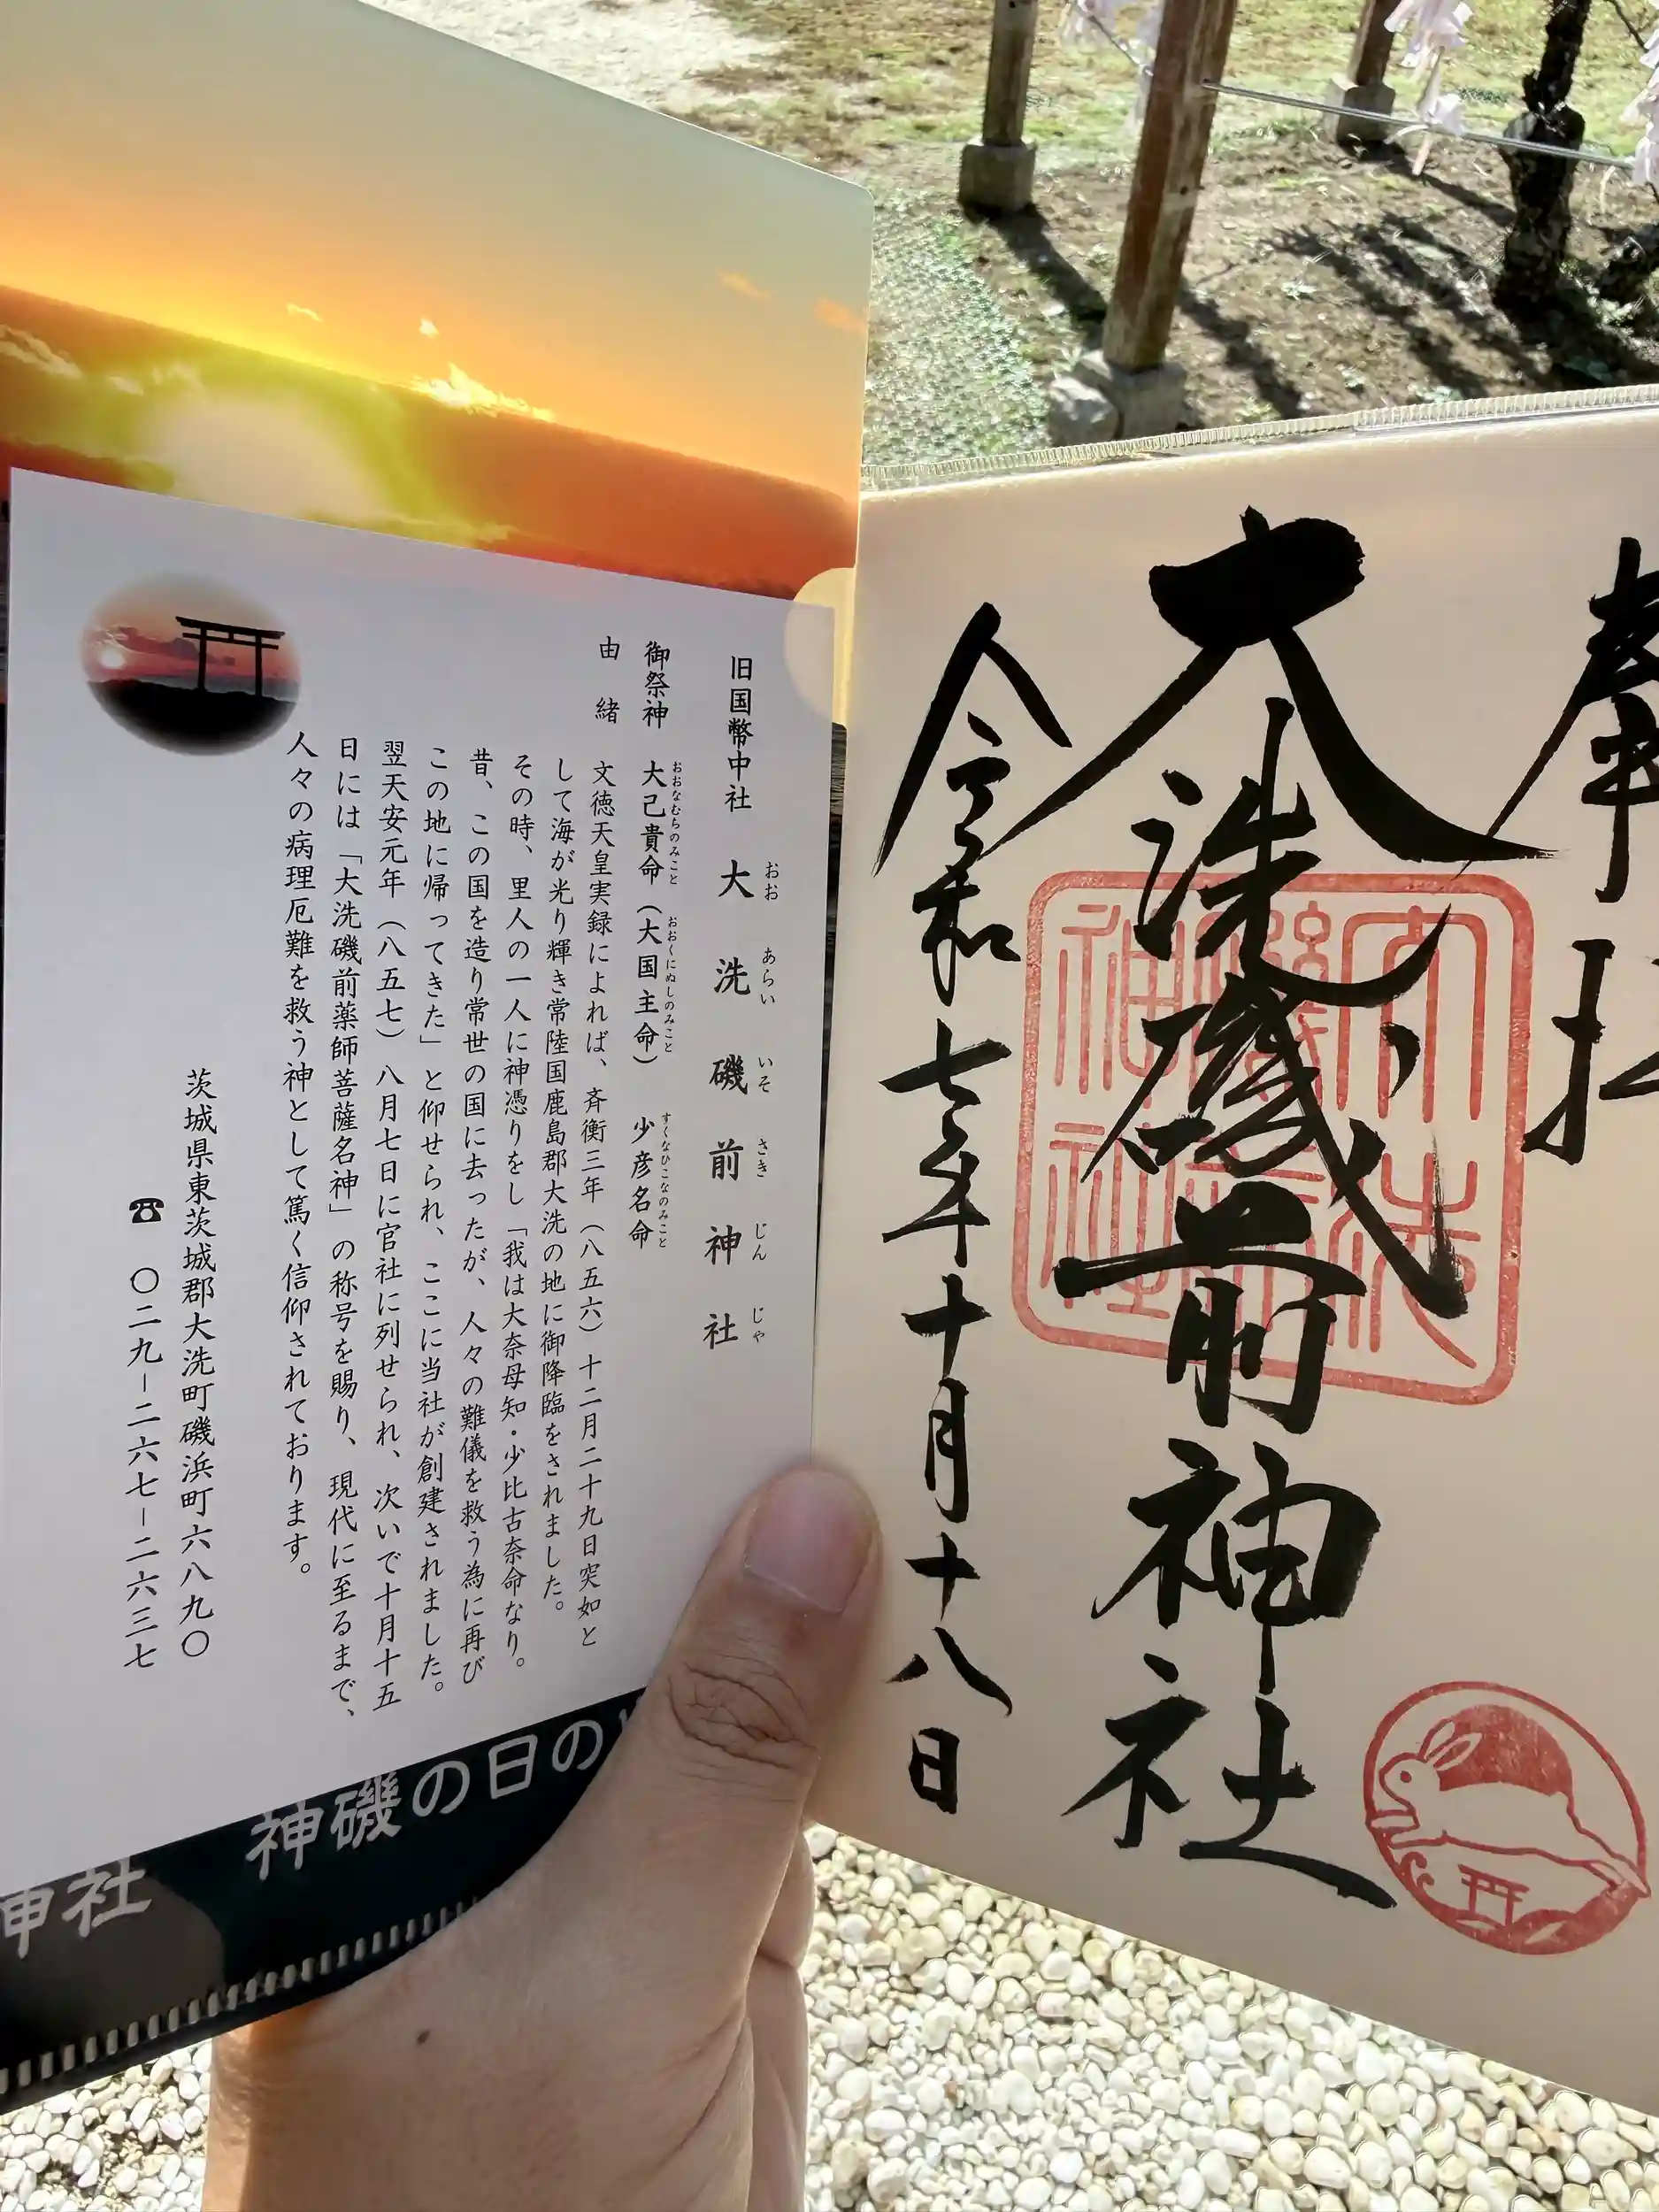 奉拝
大洗磯前神社
令和七年十月十八日
大洗
磯前
神社
旧国幣中社 大洗磯前神社
おお あらい いそ さき じん じゃ
御祭神 大己貴命(大国主命) 少彦名命
おおなむちのみこと おおくにぬしのみこと すくなひこなのみこと
由緒
文徳天皇実録によれば、斉衡三年(八五六)十二月二十九日突如と
して海が光り輝き常陸国鹿島郡大洗の地に御降臨をされました。
その時、里人の一人に神憑りをし「我は大奈母知・少比古奈命なり。
昔、この国を造り常世の国に去ったが、人々の難儀を救う為に再び
この地に帰ってきた」と仰せられ、ここに当社が創建されました。
翌天安元年(八五七)八月七日に官社に列せられ、次いで十月十五
日には「大洗磯前薬師菩薩名神」の称号を賜り、現代に至るまで、
人々の病理厄難を救う神として篤く信仰されております。
茨城県東茨城郡大洗町磯浜町六八九〇
☎ 〇二九-二六七-二六三七
神社 神磯の日の